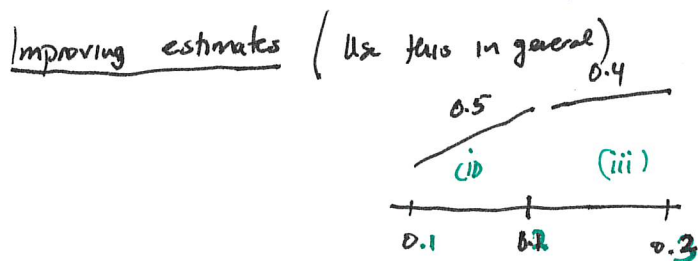 Improving estimates (Use this in general)
0.5 0.4
(ii) (iii)
0.1 0.2 0.3